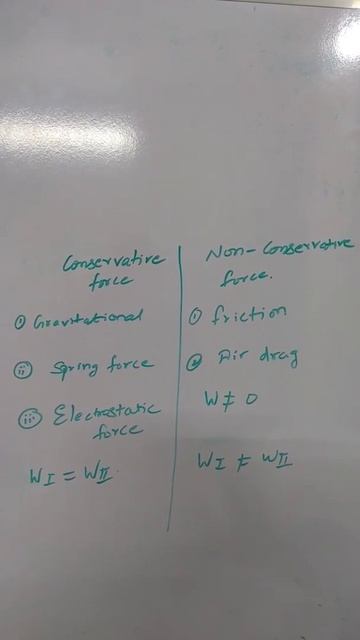 Conservative
force
① Gravitational
ⅱ Spring force
ⅲ Electrostatic
force
W_I = W_II.
Non-Conservative
force.
① friction
② Air drag
W ≠ 0
W_I ≠ W_II